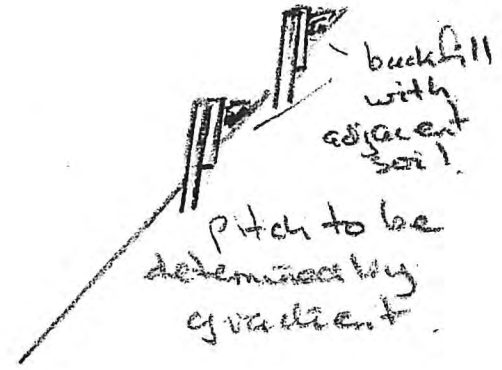 backfill
with
adjacent
soil.
Pitch to be
determined by
gradient.